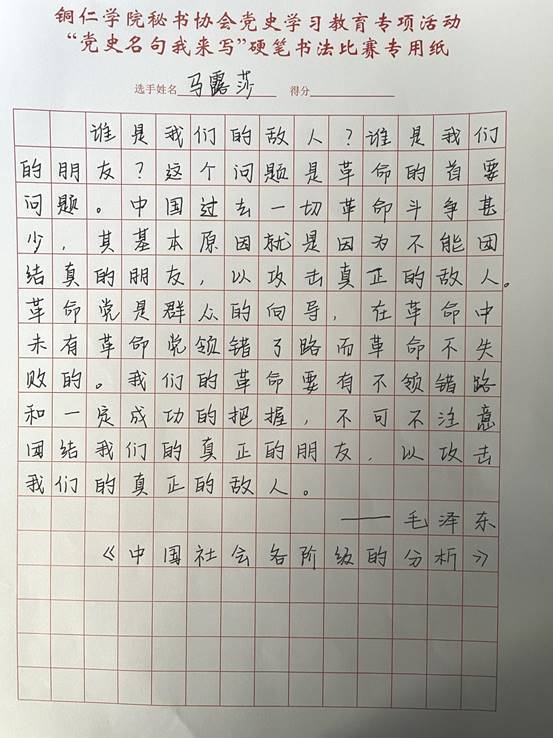 铜仁学院秘书协会党史学习教育专项活动
“党史名句我来写”硬笔书法比赛专用纸
选手姓名 马露莎 得分
谁是我们的敌人?谁是我们
的朋友?这个问题是革命的首要
问题。中国过去一切革命斗争甚
少,其基本原因就是因为不能团
结真的朋友,以攻击真正的敌人。
革命党是群众的向导,在革命中
未有革命党领错了路而革命不失
败的。我们的革命要有不领错路
和一定成功的把握,不可不注意
团结我们的真正的朋友,以攻击
我们的真正的敌人。
——毛泽东
《中国社会各阶级的分析》